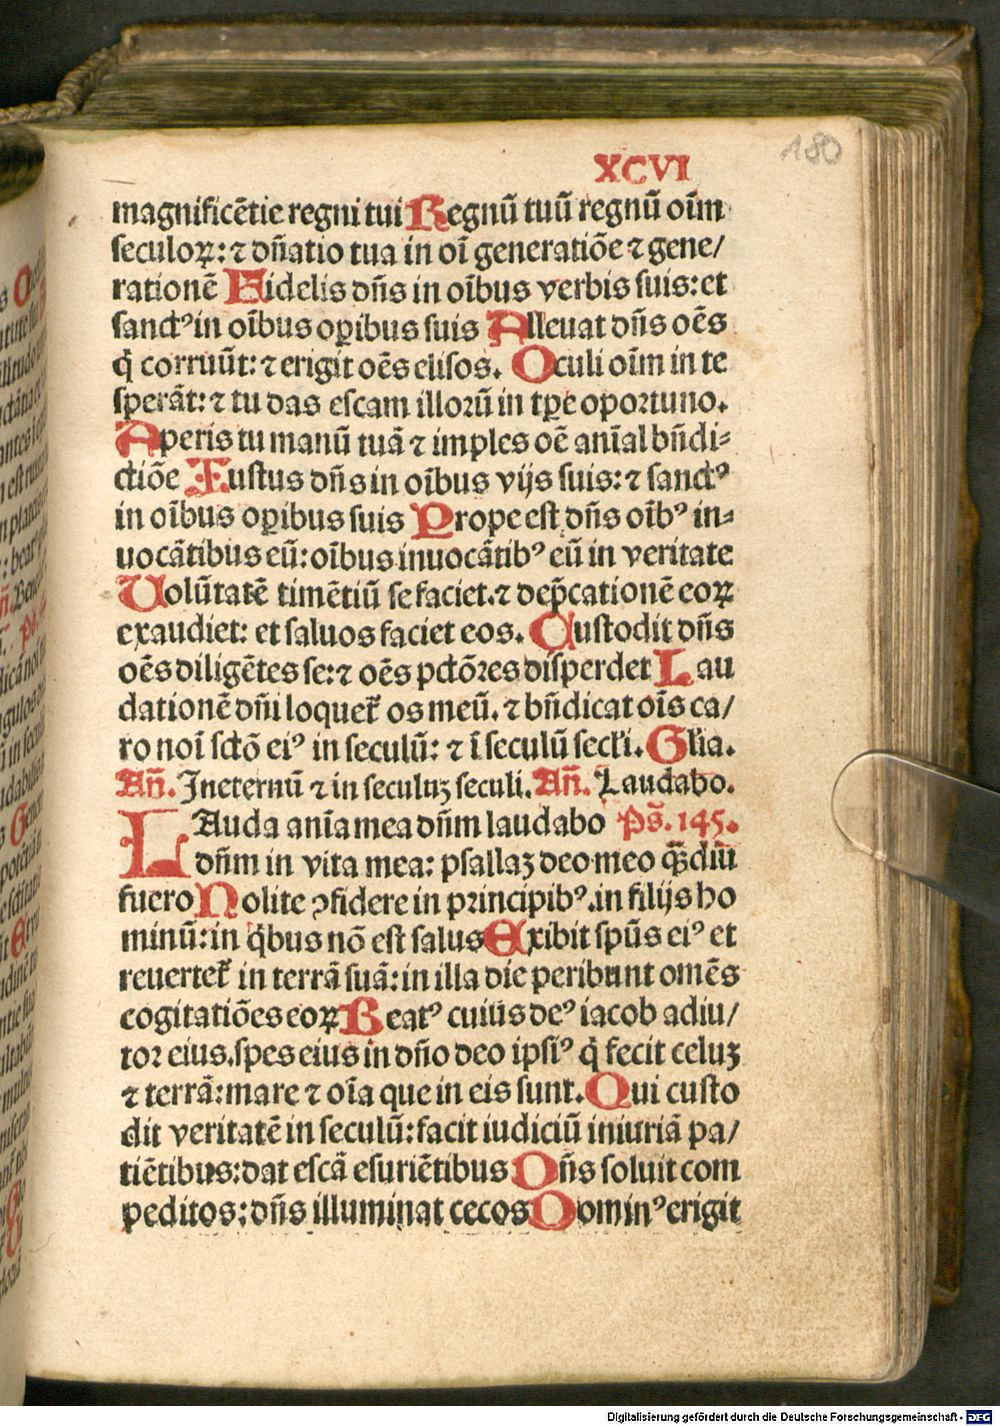 180
XCVI
magnificẽtie regni tui Regnũ tuũ regnũ oĩm
seculoꝝ: ⁊ dñatio tua in oĩ generatiõe ⁊ gene/
rationẽ Fidelis dñs in oĩbus verbis suis: et
sanctꝰ in oĩbus oꝑibus suis Alleuat dñs oẽs
q̇ corruũt: ⁊ erigit oẽs elisos. Oculi oĩm in te
sperãt: ⁊ tu das escam illorũ in tꝑe oportuno.
Aperis tu manũ tuã ⁊ imples oẽ anĩal bñdi⸗
ctiõe Iustus dñs in oĩbus vijs suis: ⁊ sanctꝰ
in oĩbus oꝑibus suis Prope est dñs oĩbꝰ in⸗
uocãtibus eũ: oĩbus inuocãtibꝰ eũ in veritate
Uolũtatẽ timẽtiũ se faciet. ⁊ dep̃cationẽ eoꝝ
exaudiet: et saluos faciet eos. Custodit dñs
oẽs diligẽtes se: ⁊ oẽs pctõres disperdet Lau
dationẽ dñi loquet̃ os meũ. ⁊ bñdicat oĩs ca/
ro noĩ sctõ eiꝰ in seculũ: ⁊ ĩ seculũ secl̃i. Gl̃ia.
Añ. In eternũ ⁊ in seculuꝫ seculi. Añ. Laudabo.
LAuda anĩa mea dñm laudabo Ps̃. 145.
dñm in vita mea: psallaꝫ deo meo q̃diũ
fuero Nolite ꝯfidere in principibꝰ. in filijs ho
minũ: in q̇bus nõ est salus Exibit spũs eiꝰ et
reuertet̃ in terrã suã: in illa die peribunt omẽs
cogitatiões eoꝝ Beatꝰ cuiũs deꝰ iacob adiu/
tor eius. spes eius in dño deo ipsiꝰ q̇ fecit celuꝫ
⁊ terrã: mare ⁊ oĩa que in eis sunt. Qui custo
dit veritatẽ in seculũ: facit iudiciũ iniuriã pa/
tiẽtibus: dat escã esuriẽtibus Dñs soluit com
peditos: dñs illuminat cecos Dominꝰ erigit
Digitalisierung gefördert durch die Deutsche Forschungsgemeinschaft - DFG